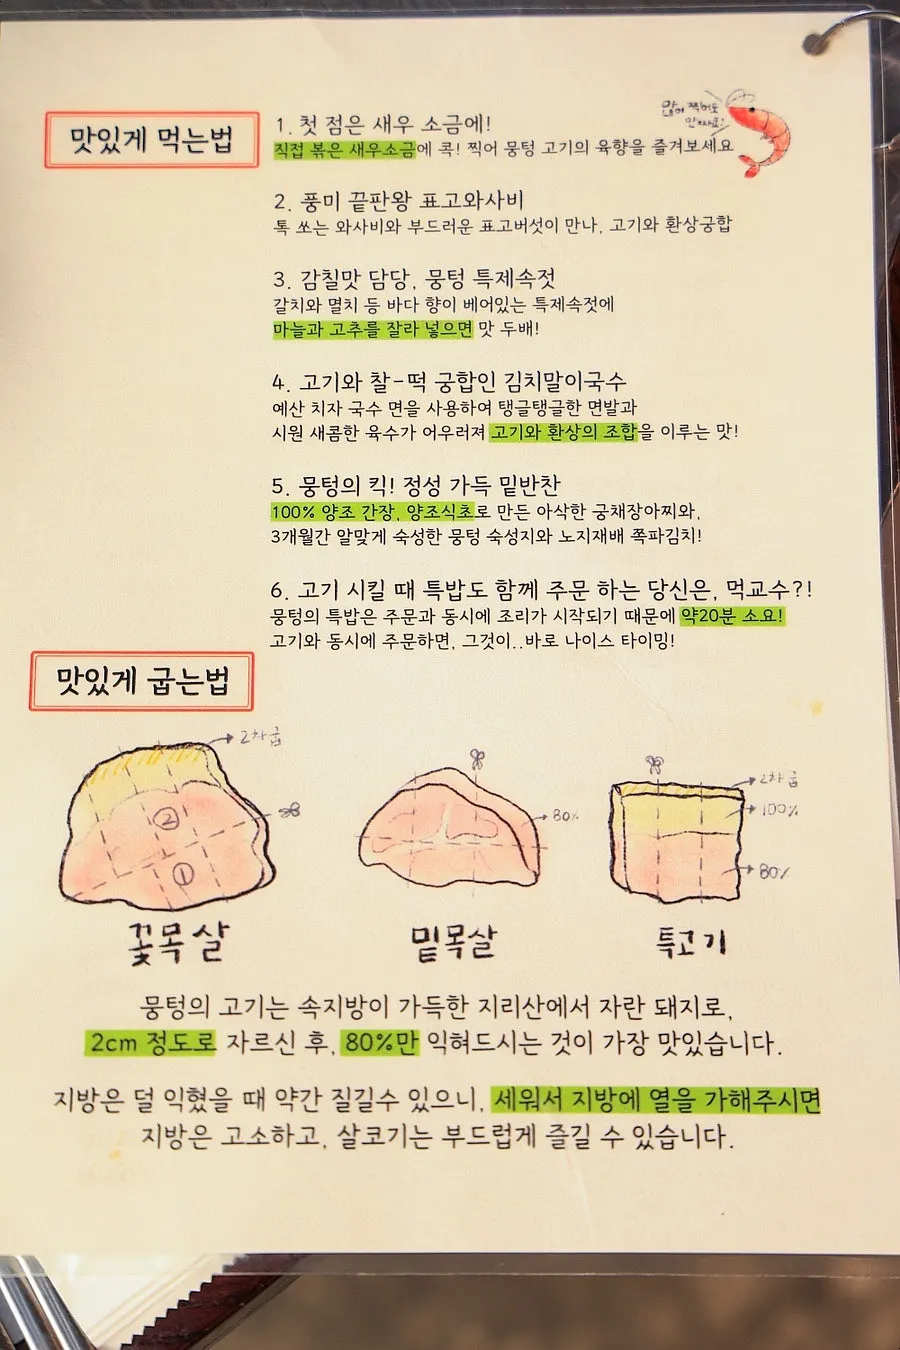 맛있게 먹는법
1. 첫 점은 새우 소금에!
직접 볶은 새우소금에 콕! 찍어 뭉텅 고기의 육향을 즐겨보세요
많이 찍어도
안짜요!
2. 풍미 끝판왕 표고와사비
톡 쏘는 와사비와 부드러운 표고버섯이 만나, 고기와 환상궁합
3. 감칠맛 담당, 뭉텅 특제속젓
갈치와 멸치 등 바다 향이 베어있는 특제속젓에
마늘과 고추를 잘라 넣으면 맛 두배!
4. 고기와 찰-떡 궁합인 김치말이국수
예산 치자 국수 면을 사용하여 탱글탱글한 면발과
시원 새콤한 육수가 어우러져 고기와 환상의 조합을 이루는 맛!
5. 뭉텅의 킥! 정성 가득 밑반찬
100% 양조 간장, 양조식초로 만든 아삭한 궁채장아찌와,
3개월간 알맞게 숙성한 뭉텅 숙성지와 노지재배 쪽파김치!
6. 고기 시킬 때 특밥도 함께 주문 하는 당신은, 먹교수?!
뭉텅의 특밥은 주문과 동시에 조리가 시작되기 때문에 약20분 소요!
고기와 동시에 주문하면, 그것이..바로 나이스 타이밍!
맛있게 굽는법
2차 굽
②
①
꽃목살
80%
밑목살
2차 굽
100%
80%
특고기
뭉텅의 고기는 속지방이 가득한 지리산에서 자란 돼지로,
2cm 정도로 자르신 후, 80%만 익혀드시는 것이 가장 맛있습니다.
지방은 덜 익혔을 때 약간 질길수 있으니, 세워서 지방에 열을 가해주시면
지방은 고소하고, 살코기는 부드럽게 즐길 수 있습니다.